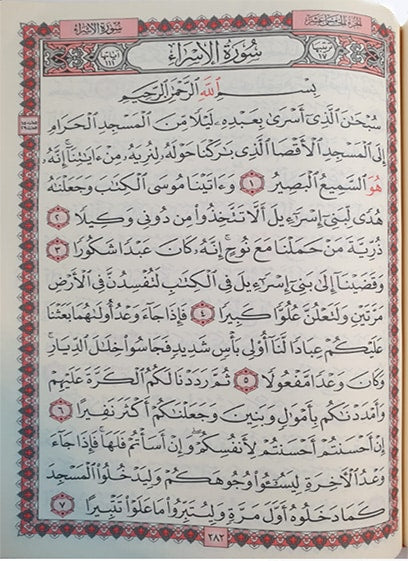 سُورَةُ الإِسْرَاءِ
الجُزْءُ الخَامِسَ عَشَرَ
آيَاتُهَا ١١١
سُورَةُ الإِسْرَاءِ
تَرْتِيبُهَا ١٧
بِسْمِ ٱللَّهِ ٱلرَّحْمَٰنِ ٱلرَّحِيمِ
سُبْحَٰنَ ٱلَّذِىٓ أَسْرَىٰ بِعَبْدِهِۦ لَيْلًا مِّنَ ٱلْمَسْجِدِ ٱلْحَرَامِ
إِلَى ٱلْمَسْجِدِ ٱلْأَقْصَا ٱلَّذِى بَٰرَكْنَا حَوْلَهُۥ لِنُرِيَهُۥ مِنْ ءَايَٰتِنَآ إِنَّهُۥ
هُوَ ٱلسَّمِيعُ ٱلْبَصِيرُ ١ وَءَاتَيْنَا مُوسَى ٱلْكِتَٰبَ وَجَعَلْنَٰهُ
هُدًى لِّبَنِىٓ إِسْرَٰٓءِيلَ أَلَّا تَتَّخِذُوا۟ مِن دُونِى وَكِيلًا ٢
ذُرِّيَّةَ مَنْ حَمَلْنَا مَعَ نُوحٍ إِنَّهُۥ كَانَ عَبْدًا شَكُورًا ٣
وَقَضَيْنَآ إِلَىٰ بَنِىٓ إِسْرَٰٓءِيلَ فِى ٱلْكِتَٰبِ لَتُفْسِدُنَّ فِى ٱلْأَرْضِ
مَرَّتَيْنِ وَلَتَعْلُنَّ عُلُوًّا كَبِيرًا ٤ فَإِذَا جَآءَ وَعْدُ أُولَىٰهُمَا بَعَثْنَا
عَلَيْكُمْ عِبَادًا لَّنَآ أُو۟لِى بَأْسٍ شَدِيدٍ فَجَاسُوا۟ خِلَٰلَ ٱلدِّيَارِ
وَكَانَ وَعْدًا مَّفْعُولًا ٥ ثُمَّ رَدَدْنَا لَكُمُ ٱلْكَرَّةَ عَلَيْهِمْ
وَأَمْدَدْنَٰكُم بِأَمْوَٰلٍ وَبَنِينَ وَجَعَلْنَٰكُمْ أَكْثَرَ نَفِيرًا ٦
إِنْ أَحْسَنتُمْ أَحْسَنتُمْ لِأَنفُسِكُمْ وَإِنْ أَسَأْتُمْ فَلَهَا فَإِذَا جَآءَ
وَعْدُ ٱلْءَاخِرَةِ لِيَسُۥٓـُٔوا۟ وُجُوهَكُمْ وَلِيَدْخُلُوا۟ ٱلْمَسْجِدَ
كَمَا دَخَلُوهُ أَوَّلَ مَرَّةٍ وَلِيُتَبِّرُوا۟ مَا عَلَوْا۟ تَتْبِيرًا ٧
٢٨٢